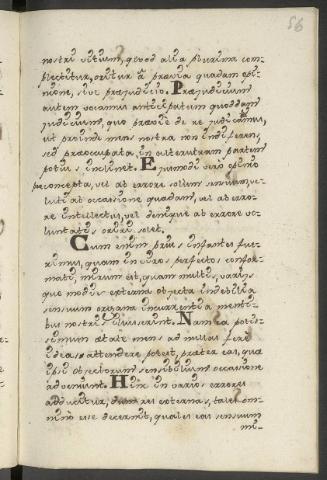 56
nostri vitium, quod alia plurima com-
plectitur, oritur à prævia quadam opi-
nione, sive præjudicio. Præjudicium
autem vocamus anticipatum quoddam
judicium, quo præcise de re judicamus,
ut proinde mens nostra non indifferens,
sed præoccupata, in alterutram partem
potius inclinet. Ejusmodi vero opinio
præconcepta, vel ab errore solum sensuum, ve-
luti ab occasione quadam, vel ab erro-
re intellectus, vel denique ab errore vo-
luntatis oriri solet.
Cum enim prius infantes fue-
rimus, quam in viros perfectos confor-
mati, mirum est, quam multis, variis-
que modis externa objecta in debilia
sensuum organa incurrentia menti-
bus nostris illuserint. Nam ea potis-
simum ætate mens ad nullas fere
ideas attendere potest, præter eas, quæ
ipsi objectorum sensibilium occasione
adveniunt. Hinc in varios errores
adducitur, dum res externas, tales om-
nino esse decernit, quales eas sensuum
mi-